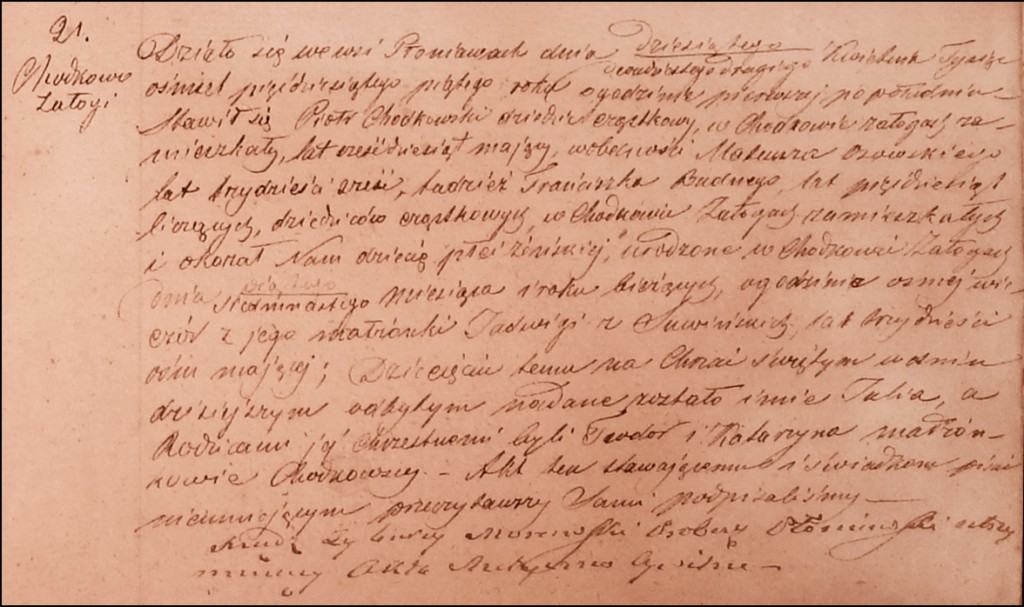 21.
Chodkowo
Załogi
Działo się we wsi Płoniawach dnia dziesiątego
dwudziestego drugiego Kwietnia Tysiąc
ośmset pięćdziesiątego piątego roku o godzinie pierwszej po południu
Stawił się Piotr Chodkowski dziedzic cząstkowy, w Chodkowie załogach za-
mieszkały, lat sześćdziesiąt mający, w obecności Mateusza Osowskiego
lat trzydzieści sześć, tudzież Franciszka Budnego, lat pięćdziesiąt
liczących, dziedziców cząstkowych, w Chodkowie Załogach zamieszkałych
i okazał Nam dziecię płci żeńskiej, urodzone w Chodkowie Załogach
dnia piątego
siedmnastego miesiąca i roku bieżących, o godzinie osmej wie-
czór z jego małżonki Jadwigi z Suwińskich, lat trzydzieści
ośm mającej; Dziecięciu temu na Chrzcie świętym w dniu
dzisiejszym odbytym nadane zostało imie Julia, a
Rodzicami jej chrzestnemi byli Teodor i Katarzyna małżon-
kowie Chodkowscy – Akt ten stawającemu i świadkom pisać
nieumiejącym przeczytawszy Sami podpisaliśmy –
Xiądz Morawski Proboszcz Płoniawski utrzy
mujący Akta Stanu Cywilne –